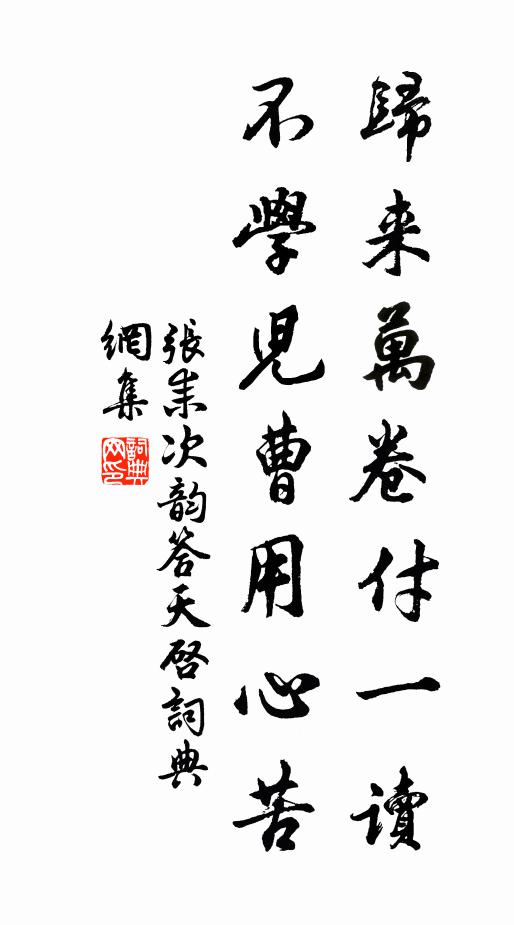 歸来萬卷付一讀
不學児曹用心苦
張耒次韵答天啓詞典
網集
詞典网印